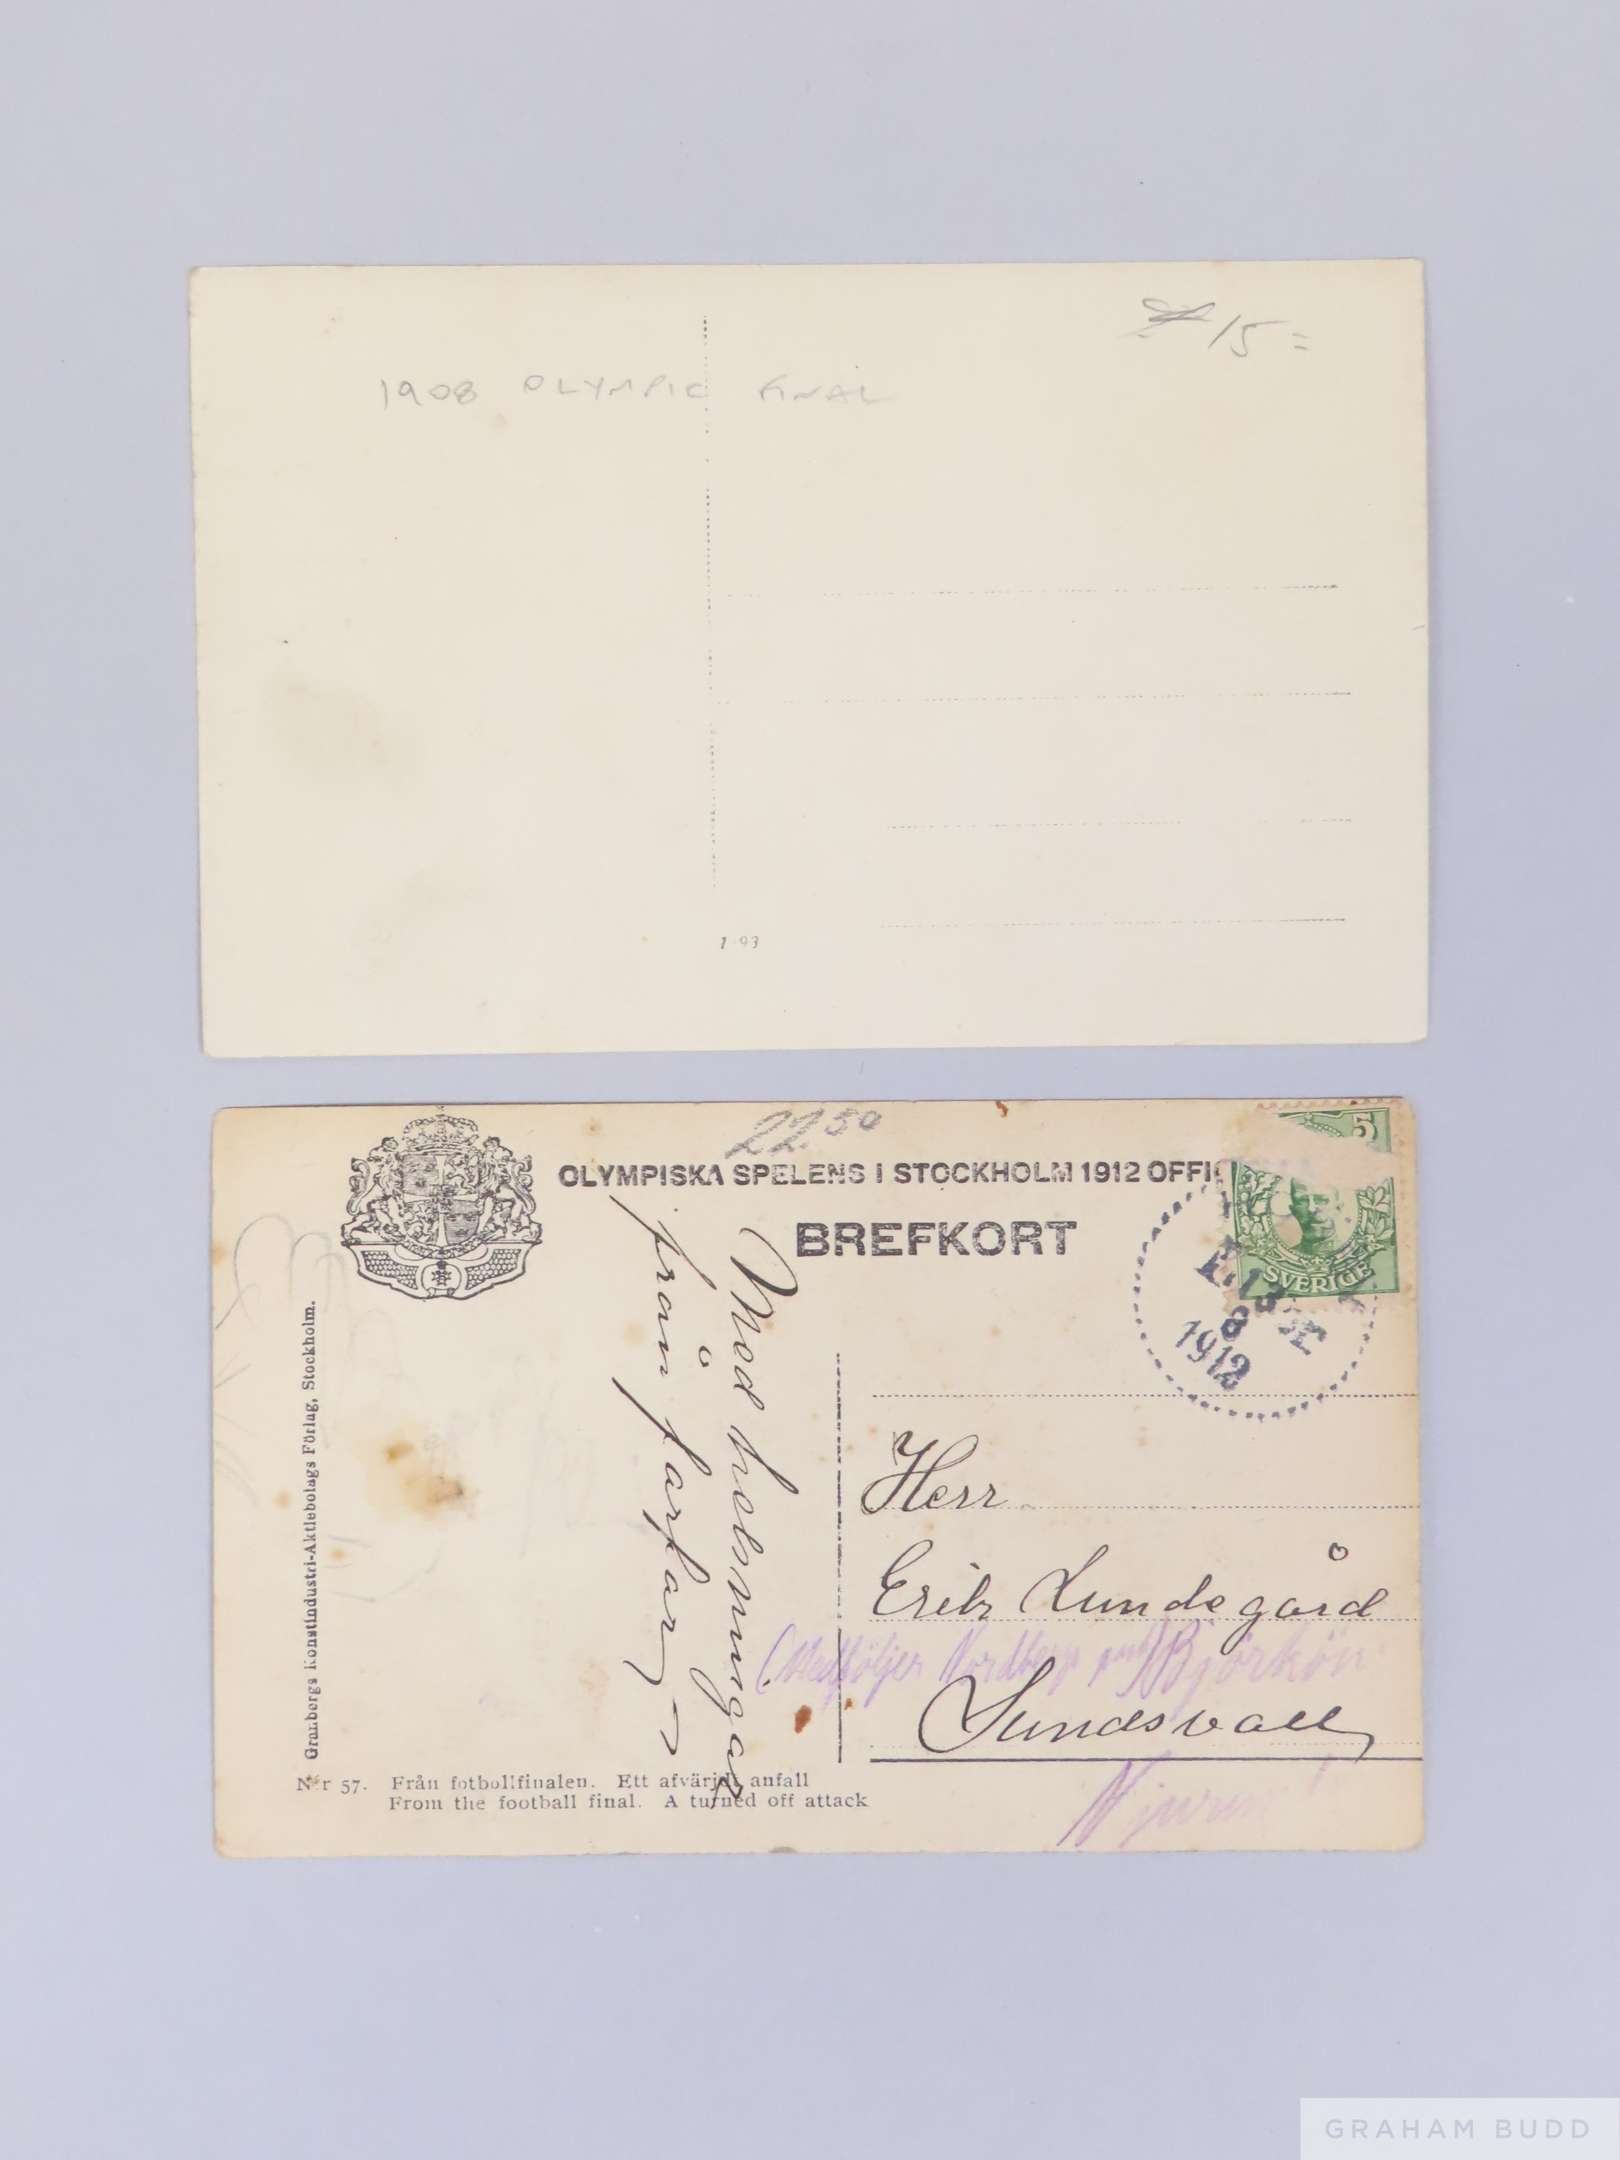 15 =
1908 OLYMPIC FINAL
1 93
22.50
OLYMPISKA SPELENS I STOCKHOLM 1912 OFFIC
BREFKORT
5
SVERIGE
8
1912
Med helsningar
från farfar
Granbergs Konstindustri-Aktiebolags Förlag, Stockholm.
Herr
Erik Lundegård
(Medföljer Nordbergs Björkön
Sundsvall
N:r 57. Från fotbollfinalen. Ett afvärjdt anfall
From the football final. A turned off attack
GRAHAM BUDD